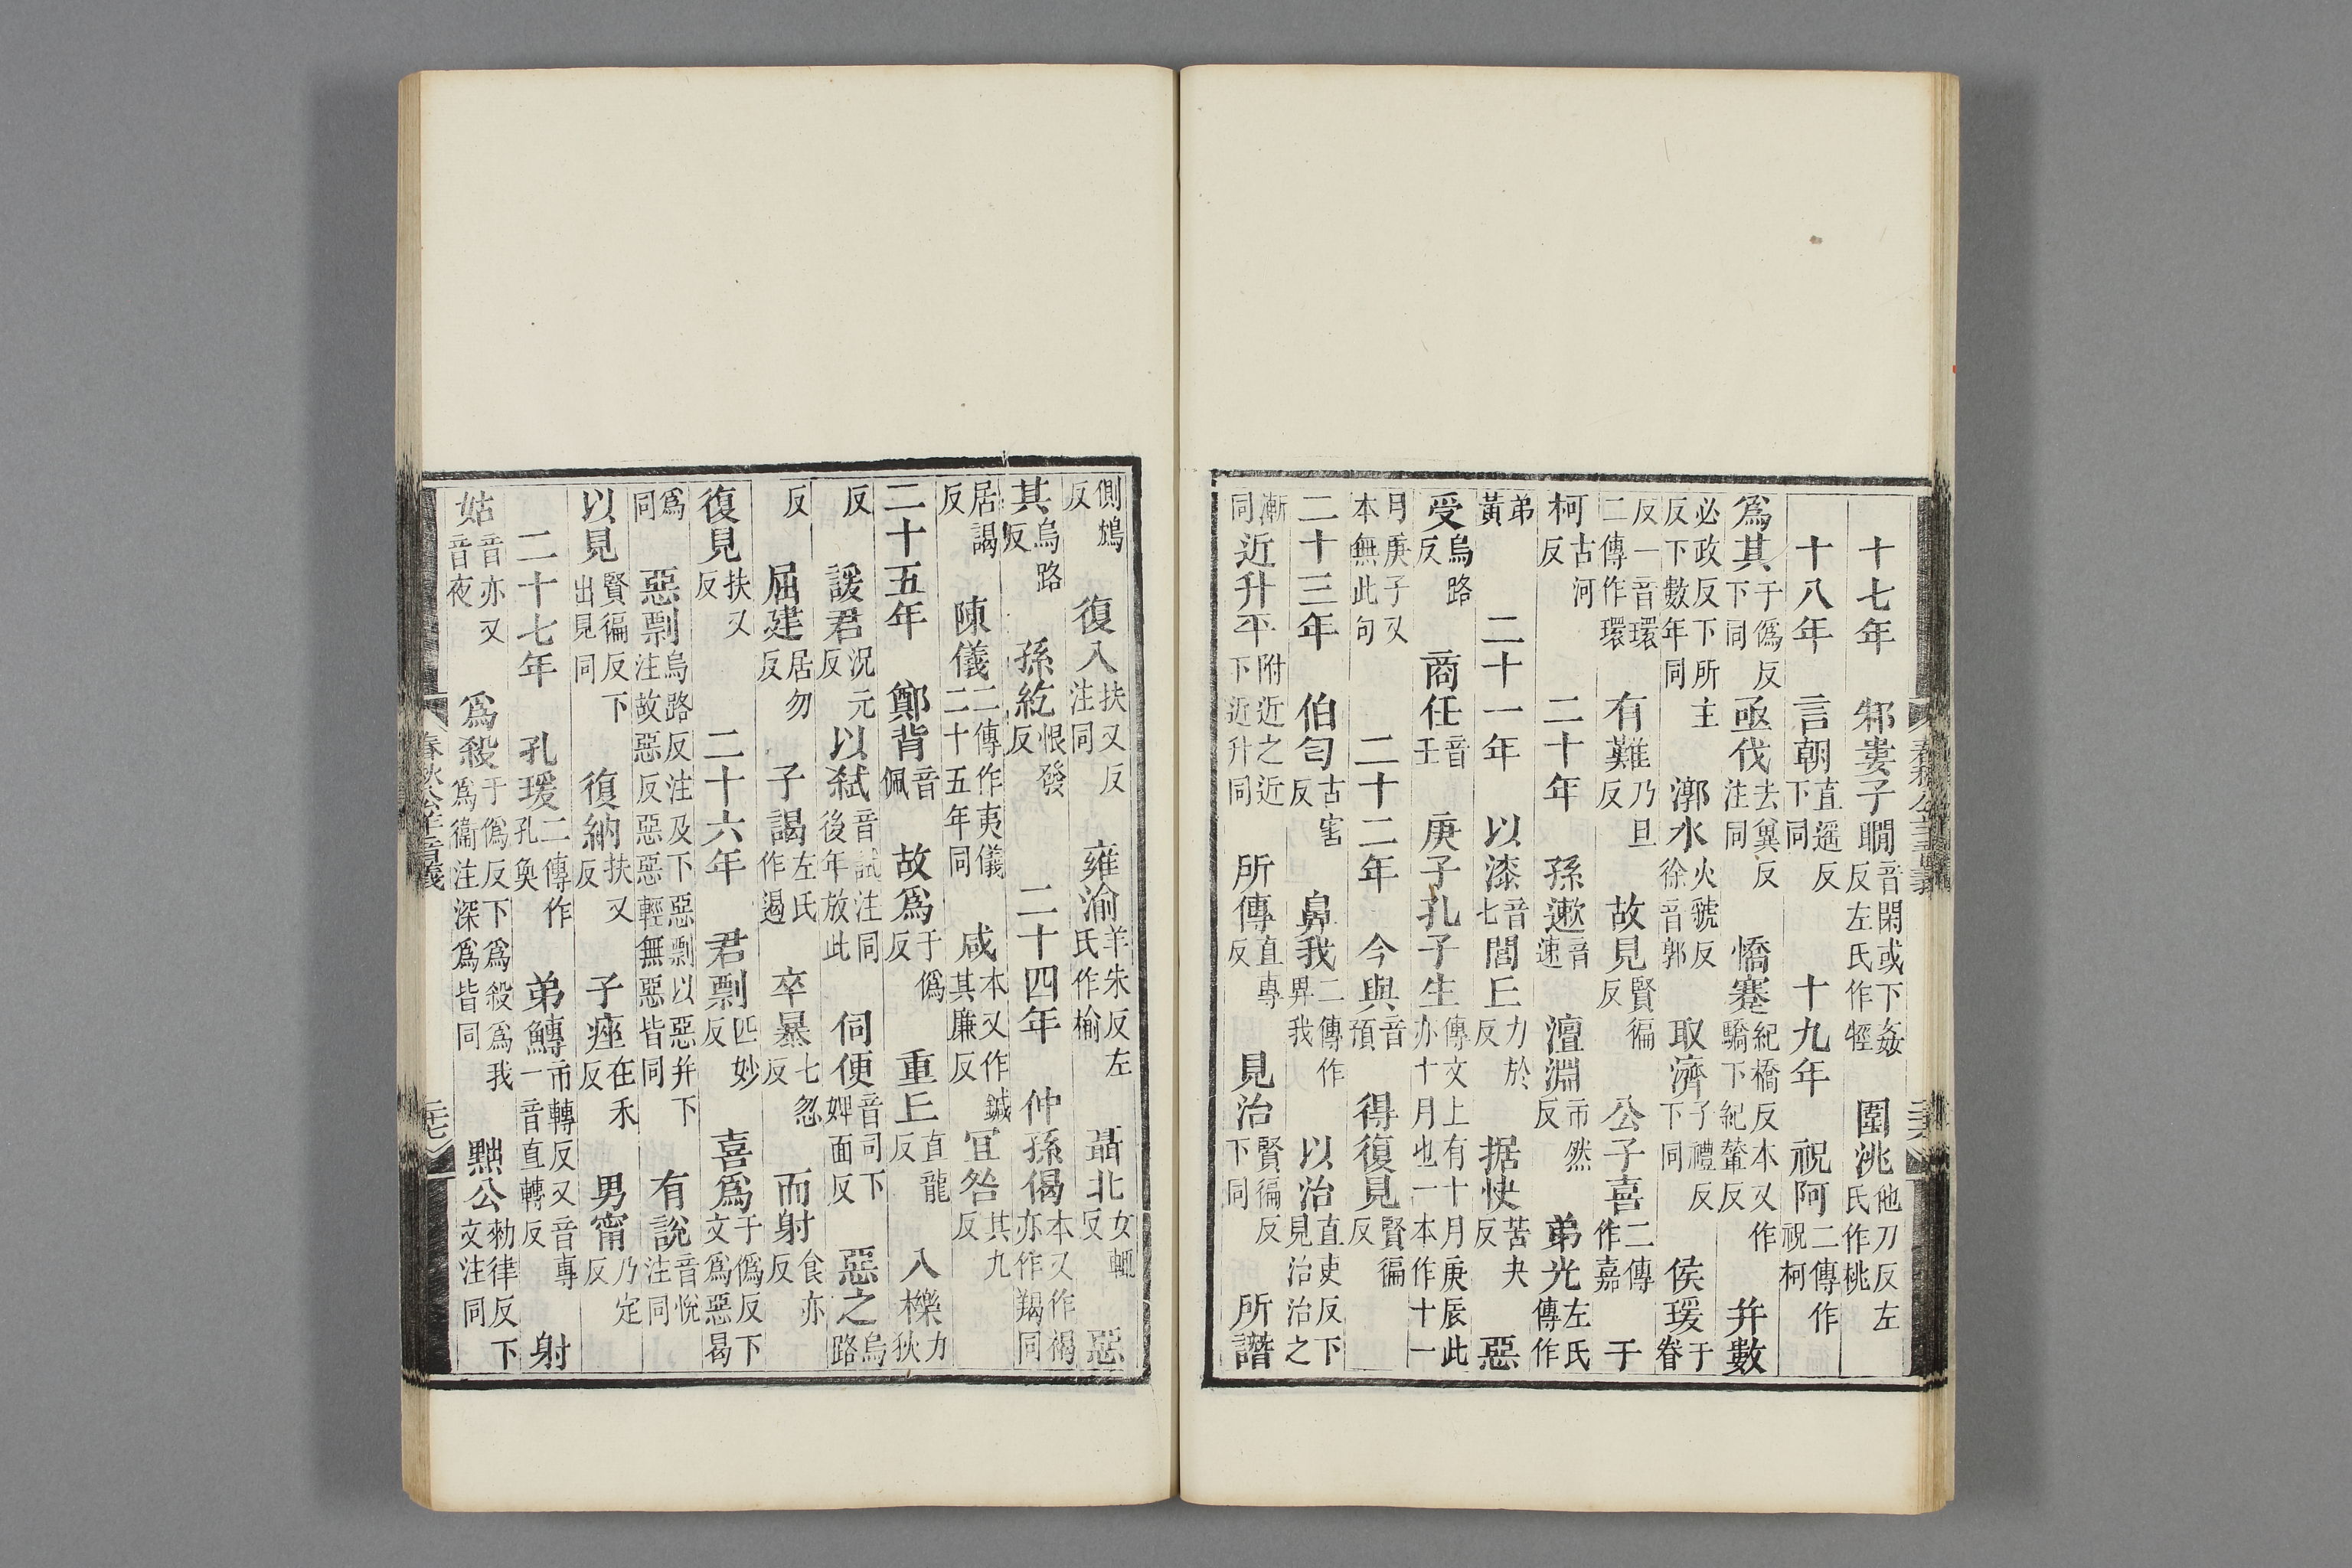 十七年 邾婁子瞷音閑或下姦反左氏作牼 圍洮他刀反左氏作桃
十八年 言朝直遥反下同 十九年 祝阿二傳作祝柯
爲其于僞反下同 亟伐去冀反注同 憍蹇紀橋反本又作驕下紀輦反 并數
必政反下所主反下數年同 漷水火虢反徐音郭 取濟子禮反下同 侯瑗于眷
反一音環二傳作環 有難乃旦反 故見賢徧反 公子喜二傳作嘉 于
柯古河反 二十年 孫遬音速 澶淵市然反 弟光左氏傳作
弟黃 二十一年 以漆音七 閭丘力於反 据快苦夬反 惡
受烏路反 商任音壬 庚子孔子生傳文上有十月庚辰此亦十月也一本作十一
月庚子又本無此句 二十二年 今與音預 得復見賢徧反
二十三年 伯匄古害反 鼻我二傳作畀我 以治直吏反下見治治之
漸同 近升平附近之近下近升同 所傳直專反 見治賢徧反下同 所譖
側鴆反 復入扶又反注同 雍渝羊朱反左氏作榆 聶北女輒反 惡
其烏路反 孫紇恨發反 二十四年 仲孫偈本又作褐亦作羯同
居謁反 陳儀二傳作夷儀二十五年同 咸本又作鍼其廉反 宜咎其九反
二十五年 鄭背音佩 故爲于僞反 重丘直龍反 入櫟力狄
反 諼君況元反 以弑音試注同後年放此 伺便音司下婢面反 惡之烏路
反 屈建居勿反 子謁左氏作遏 卒暴七忽反 而射食亦反
復見扶又反 二十六年 君剽匹妙反 喜爲于僞反下文爲惡曷
爲同 惡剽烏路反注及下惡剽以惡并下注故惡反惡惡輕無惡皆同 有說音悅注同
以見賢徧反下出見同 復納扶又反 子痤在禾反 男甯乃定反
二十七年 孔瑗二傳作孔奐 弟鱄市轉反又音專一音直轉反 射
姑音亦又音夜 爲殺于僞反下爲殺爲我爲衞注深爲皆同 黜公勑律反下文注同
春秋公羊音義